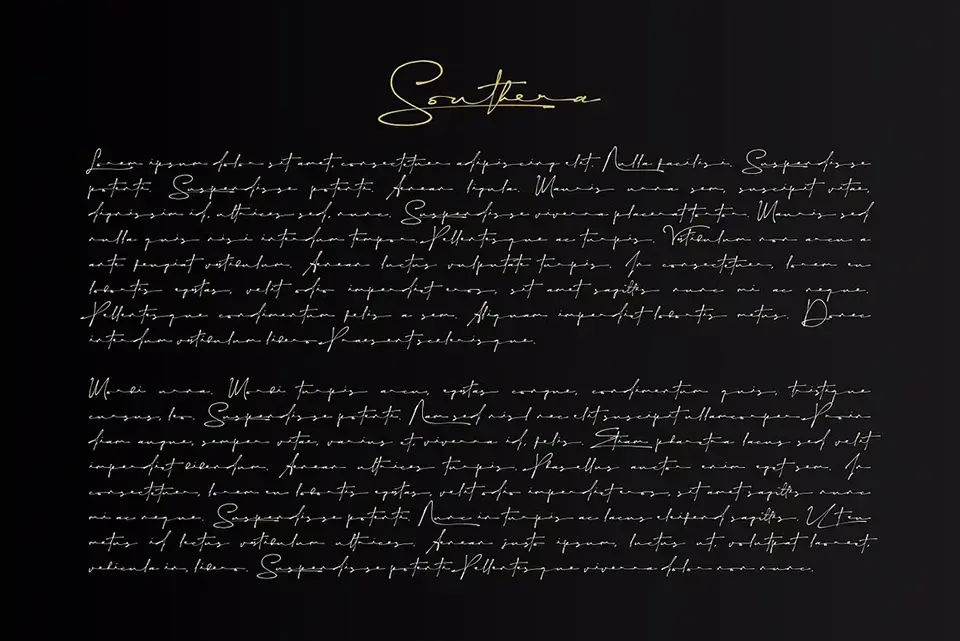 Southera
Lorem ipsum dolor sit amet, consectetuer adipiscing elit. Nulla facilisi. Suspendisse
potenti. Suspendisse potenti. Aenean ligula. Mauris urna sem, suscipit vitae,
dignissim id, ultrices sed, nunc. Suspendisse viverra placerat tortor. Mauris sed
nulla quis nisi interdum tempor. Pellentesque ac turpis. Vestibulum non arcu a
ante feugiat vestibulum. Aenean luctus vulputate turpis. In consectetuer, lorem eu
lobortis egestas, velit odio imperdiet eros, sit amet sagittis nunc mi ac neque.
Pellentesque condimentum felis a sem. Aliquam imperdiet lobortis metus. Donec
interdum vestibulum libero. Praesent scelerisque.
Morbi urna. Morbi turpis arcu, egestas congue, condimentum quis, tristique
cursus, leo. Suspendisse potenti. Nam sed nisl nec elit suscipit ullamcorper. Proin
diam augue, semper vitae, varius et, viverra id, felis. Etiam pharetra lacus sed velit
imperdiet bibendum. Aenean ultrices turpis. Phasellus auctor enim eget sem. In
consectetuer, lorem eu lobortis egestas, velit odio imperdiet eros, sit amet sagittis nunc
mi ac neque. Suspendisse potenti. Nunc in turpis ac lacus eleifend sagittis. Ut eu
metus id lectus vestibulum ultrices. Aenean justo ipsum, luctus ut, volutpat laoreet,
vehicula in, libero. Suspendisse potenti. Pellentesque viverra dolor non nunc.